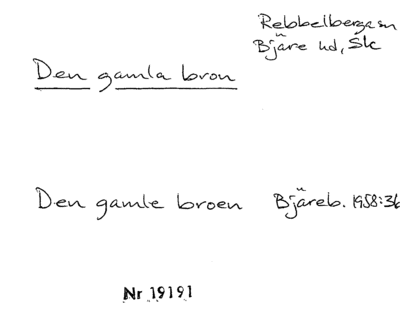 Rebbelberga sn
Bjäre hd, Sk
Den gamla bron
Den gamle broen Bjäreb. 1958:36
Nr 19191